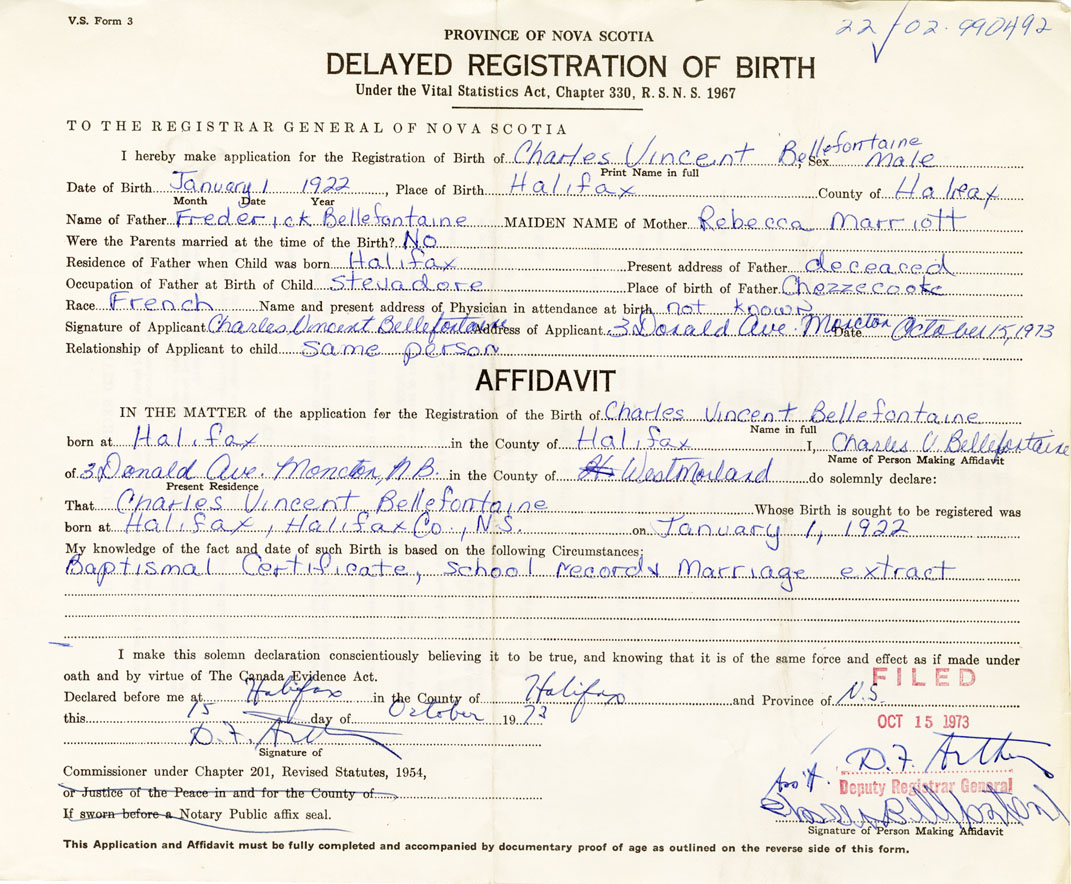 V.S. Form 3
22/02-990492
PROVINCE OF NOVA SCOTIA
DELAYED REGISTRATION OF BIRTH
Under the Vital Statistics Act, Chapter 330, R.S.N.S. 1967
TO THE REGISTRAR GENERAL OF NOVA SCOTIA
I hereby make application for the Registration of Birth of Charles Vincent Bellefontaine, Sex Male
Print Name in full
Date of Birth January 1 1922, Place of Birth Halifax County of Halifax
Month Date Year
Name of Father Frederick Bellefontaine MAIDEN NAME of Mother Rebecca Marriott
Were the Parents married at the time of the Birth? No
Residence of Father when Child was born Halifax Present address of Father deceased
Occupation of Father at Birth of Child stevadore Place of birth of Father Chezzecooke
Race French Name and present address of Physician in attendance at birth not known
Signature of Applicant Charles Vincent Bellefontaine Address of Applicant 3 Donald Ave. Moncton Date October 15, 1973
Relationship of Applicant to child same person
AFFIDAVIT
IN THE MATTER of the application for the Registration of the Birth of Charles Vincent Bellefontaine
Name in full
born at Halifax in the County of Halifax I, Charles V. Bellefontaine
Name of Person Making Affidavit
of 3 Donald Ave. Moncton, N.B. in the County of Westmorland do solemnly declare:
Present Residence
That Charles Vincent Bellefontaine Whose Birth is sought to be registered was
born at Halifax, Halifax Co., N.S. on January 1, 1922
My knowledge of the fact and date of such Birth is based on the following Circumstances:
Baptismal Certificate, school record & Marriage extract
I make this solemn declaration conscientiously believing it to be true, and knowing that it is of the same force and effect as if made under
oath and by virtue of The Canada Evidence Act.
FILED
Declared before me at Halifax in the County of Halifax and Province of N.S.
this 15 day of October 1973
OCT 15 1973
D.F. Arthur
Signature of
D.F. Arthur
Commissioner under Chapter 201, Revised Statutes, 1954,
Ass't. Deputy Registrar General
or Justice of the Peace in and for the County of
If sworn before a Notary Public affix seal.
Charles Bellefontaine
Signature of Person Making Affidavit
This Application and Affidavit must be fully completed and accompanied by documentary proof of age as outlined on the reverse side of this form.